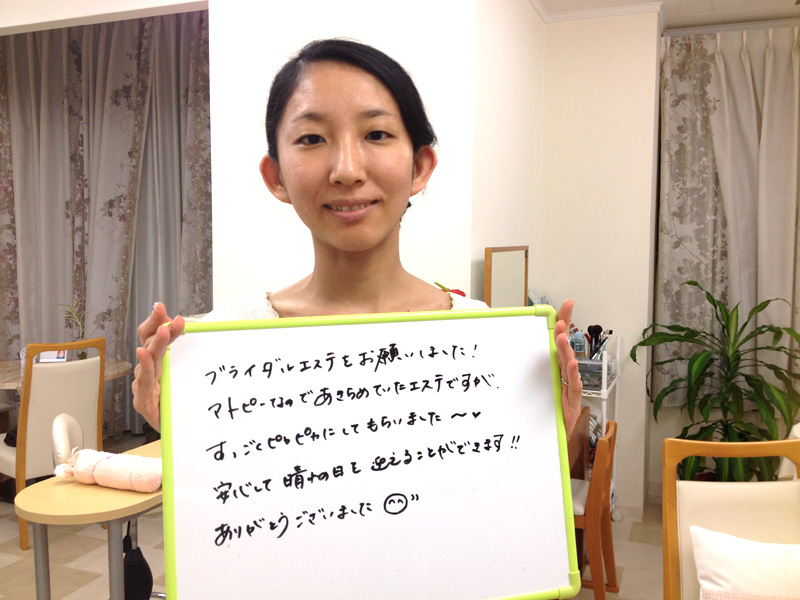 ブライダルエステをお願いしました!
アトピーなので あきらめていたエステですが、
すっごくピカピカにしてもらいました〜♥
安心して 晴れの日を 迎えることができます!!
ありがとうございました